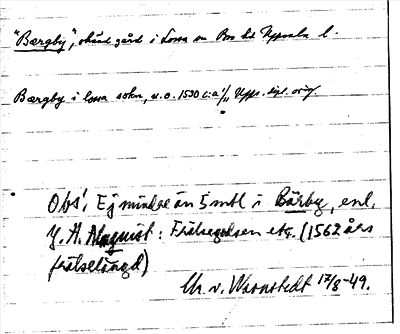 "Bærgby", okänd gård i Lossa sn Bro hd Uppsala l.
Bærgby i lossa sokn, u.o. 1530 c:a 1/11 Upps. dipl. orig.
Obs! Ej mindre än 5 mtl i Bärby, enl.
J. A. Almquist: Frälsegodsen etc. (1562 års
frälselängd)
Chr. v. Warnstedt 17/8-49.